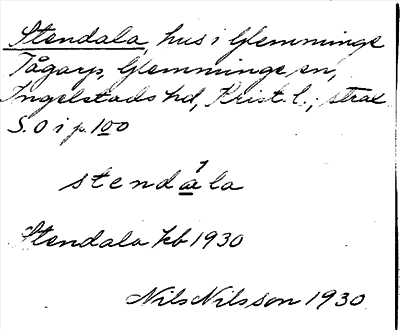 Stendala, hus i Glemminge
Tågarp, Glemminge sn,
Ingelstads hd, Krist. l.; strax
S. O i p. 100
stendala
Stendala kb 1930
Nils Nilsson 1930